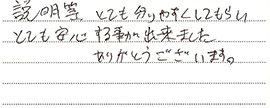 説明等 とても分りやすくしてもらい
とても安心する事が出来ました
ありがとうございます。